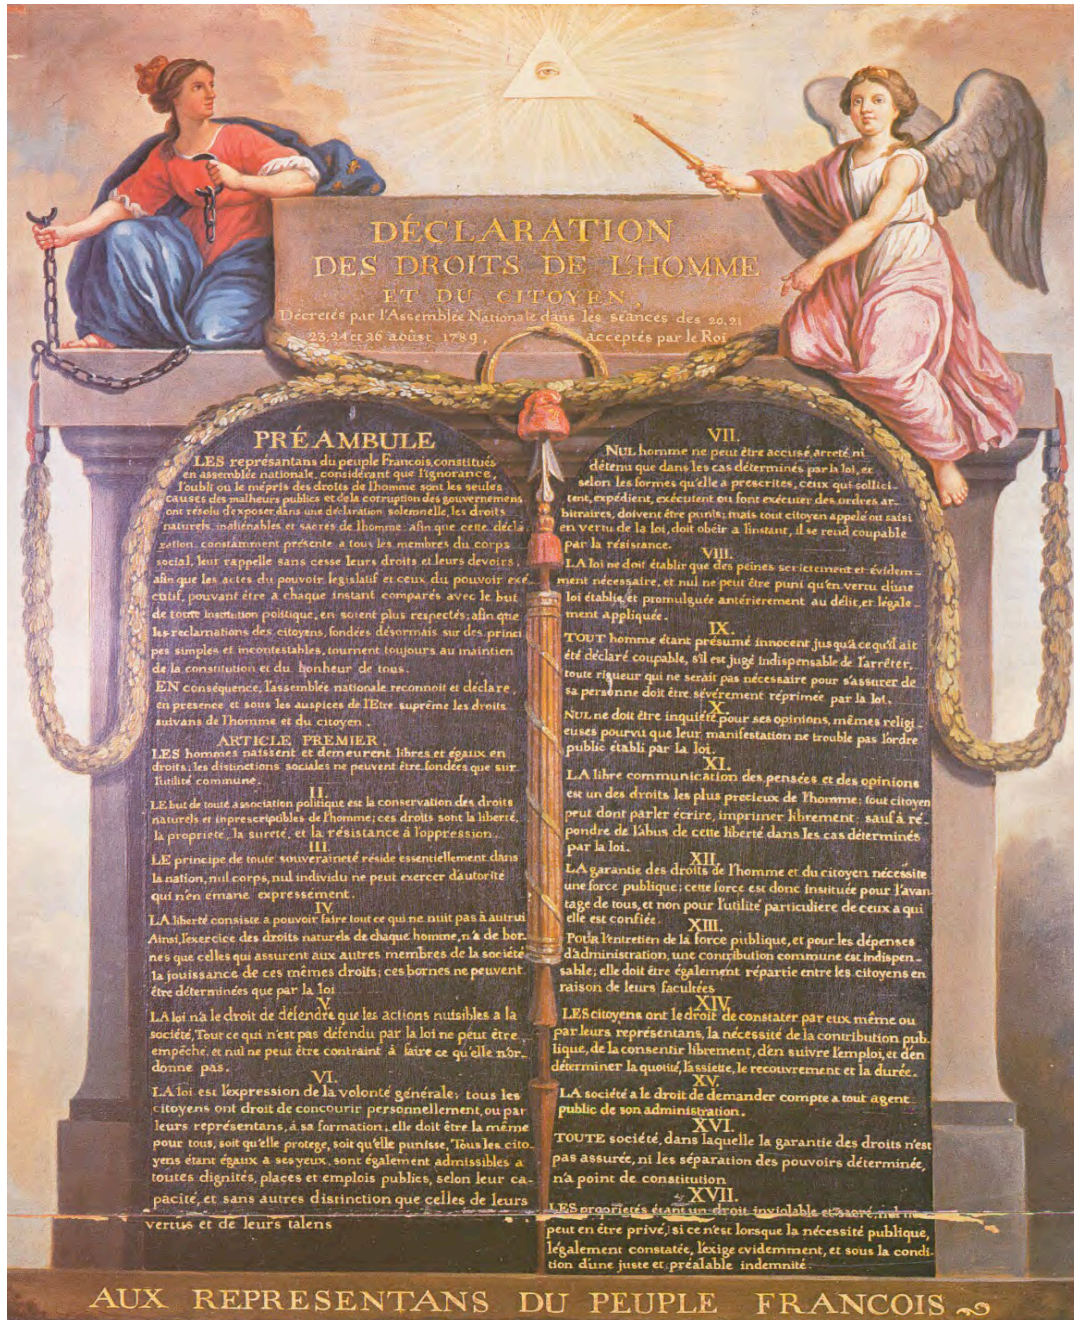 DÉCLARATION
DES DROITS DE L'HOMME
ET DU CITOYEN,
Décretés par l'Assemblée Nationale dans les séances des 20, 21
23, 24 et 26 aoûst 1789, acceptés par le Roi
PRÉAMBULE
LES représantans du peuple Francois, constitués
en assemblée nationale, considérant que l'ignorance,
l'oubli ou le mépris des droits de l'homme sont les seules
causes des malheurs publics et de la corruption des gouvernemens
ont résolu d'exposer, dans une déclaration solemnelle, les droits
naturels, inaliénables et sacrés de l'homme: afin que cette décla
ration, constamment présente a tous les membres du corps
social, leur rappelle sans cesse leurs droits et leurs devoirs,
afin que les actes du pouvoir legislatif et ceux du pouvoir exé
cutif, pouvant être a chaque instant comparés avec le but
de toute institution politique, en soient plus respectés; afin que
les reclamations des citoyens, fondées désormais sur des princi
pes simples et incontestables, tournent toujours au maintien
de la constitution et du bonheur de tous.
EN conséquence, l'assemblée nationale reconnoit et déclare,
en presence et sous les auspices de l'Etre suprême les droits
suivans de l'homme et du citoyen.
ARTICLE PREMIER
LES hommes naissent et demeurent libres et égaux en
droits; les distinctions sociales ne peuvent être fondées que sur
l'utilité commune.
II.
LE but de toute association politique est la conservation des droits
naturels et inprescriptibles de l'homme; ces droits sont la liberté,
la propriete, la sureté, et la résistance à l'oppression.
III.
LE principe de toute souveraineté réside essentiellement dans
la nation, nul corps, nul individu ne peut exercer d'autorité
qui n'en emane expressement.
IV.
LA liberté consiste a pouvoir faire tout ce qui ne nuit pas à autrui
Ainsi, l'exercice des droits naturels de chaque homme, n'a de bor-
nes que celles qui assurent aux autres membres de la société
la jouissance de ces mêmes droits; ces bornes ne peuvent
être déterminées que par la loi
V.
LA loi n'a le droit de défendre que les actions nuisibles a la
société, Tout ce qui n'est pas défendu par la loi ne peut être
empêché, et nul ne peut être contraint à faire ce qu'elle n'or-
donne pas.
VI.
LA loi est l'expression de la volonté générale; tous les
citoyens ont droit de concourir personnellement, ou par
leurs représentans, à sa formation; elle doit être la même
pour tous, soit qu'elle protege, soit qu'elle punisse, Tous les cito-
yens étant égaux a ses yeux, sont également admissibles a
toutes dignités, places et emplois publics, selon leur ca-
pacité, et sans autres distinction que celles de leurs
vertus et de leurs talens
VII.
NUL homme ne peut être accusé, arreté ni
détenu que dans les cas déterminés par la loi, et
selon les formes qu'elle a prescrites, ceux qui sollici-
tent, expédient, exécutent ou font exécuter des ordres ar-
bitraires, doivent être punis; mais tout citoyen appelé ou saisi
en vertu de la loi, doit obéir a l'instant, il se rend coupable
par la résistance.
VIII.
LA loi ne doit établir que des peines strictement et évidem-
ment nécessaire, et nul ne peut être puni qu'en vertu d'une
loi établie et promulguée antérierement au délit, et légale-
ment appliquée.
IX.
TOUT homme étant présumé innocent jusqu'a ce qu'il ait
été déclaré coupable, s'il est jugé indispensable de l'arrêter,
toute rigueur qui ne serait pas nécessaire pour s'assurer de
sa personne doit être sévérement réprimée par la loi.
X.
NUL ne doit être inquiété pour ses opinions, mêmes religi-
euses pourvû que leur manifestation ne trouble pas l'ordre
public établi par la loi.
XI.
LA libre communication des pensées et des opinions
est un des droits les plus precieux de l'homme: tout citoyen
peut dont parler écrire, imprimer librement: sauf a ré-
pondre de l'abus de cette liberté dans les cas déterminés
par la loi.
XII.
LA garantie des droits de l'homme et du citoyen nécessite
une force publique; cette force est donc instituée pour l'avan-
tage de tous, et non pour l'utilité particuliere de ceux a qui
elle est confiée.
XIII.
POUR l'entretien de la force publique, et pour les dépenses
d'administration, une contribution commune est indispen-
sable; elle doit être également répartie entre les citoyens en
raison de leurs facultées
XIV.
LES citoyens ont le droit de constater par eux même ou
par leurs représentans, la nécessité de la contribution pub-
lique, de la consentir librement, d'en suivre l'emploi, et d'en
déterminer la quotité, l'assiette, le recouvrement et la durée.
XV.
LA société a le droit de demander compte a tout agent
public de son administration.
XVI.
TOUTE société, dans laquelle la garantie des droits n'est
pas assurée, ni les séparation des pouvoirs déterminée,
n'a point de constitution
XVII.
LES proprietés étant un droit inviolable et sacré, nul ne
peut en être privé, si ce n'est lorsque la nécessité publique,
légalement constatée, l'exige evidemment, et sous la condi-
tion d'une juste et préalable indemnité.
AUX REPRESENTANS DU PEUPLE FRANCOIS